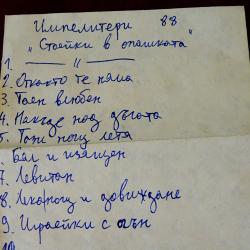 Импелитери 88
"Стаейки в опашката"
1. —— " ——
2. Откакто те няма
3. Таен влюбен
4. Някъде над дъгата
5. Тази нощ летя
6. Бял и изящен
7. Левитан
8. Лека нощ и довиждане
9. Играейки с огън
10.